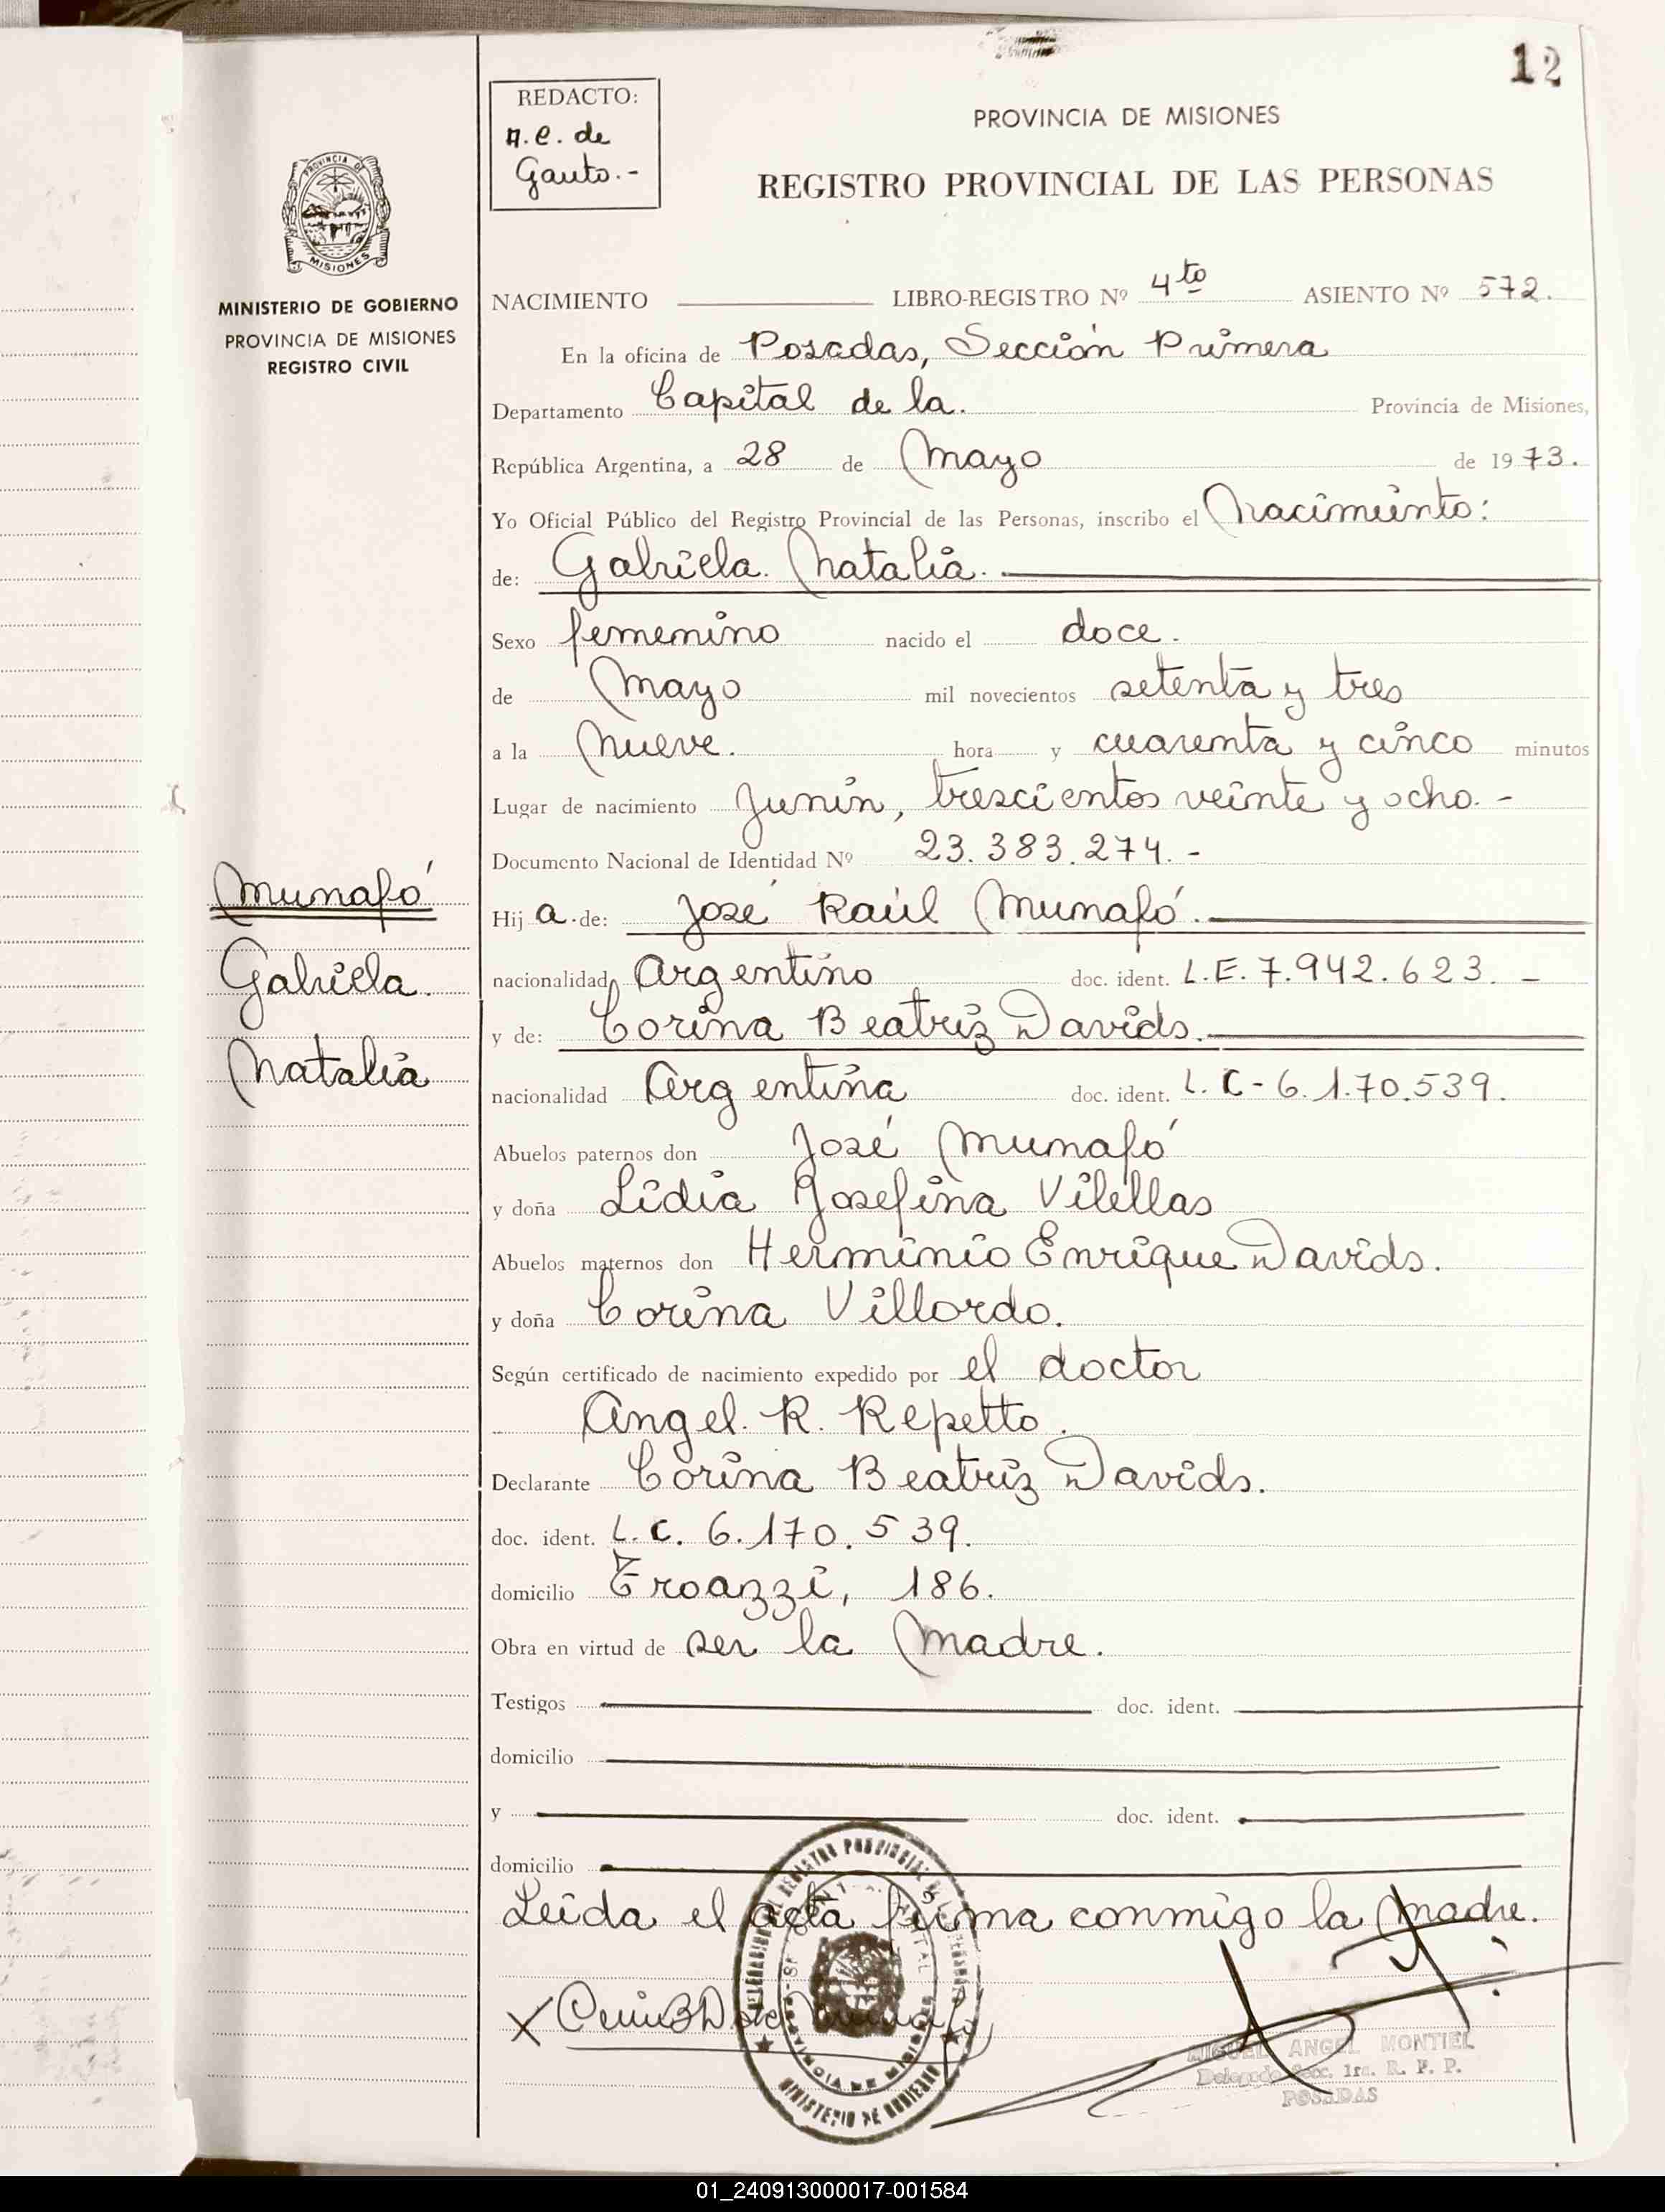 12
REDACTO:
A.C. de
Gauto.-
PROVINCIA DE MISIONES
REGISTRO PROVINCIAL DE LAS PERSONAS
PROVINCIA DE
MISIONES
MINISTERIO DE GOBIERNO
PROVINCIA DE MISIONES
REGISTRO CIVIL
NACIMIENTO LIBRO-REGISTRO Nº 4to ASIENTO Nº 572.
En la oficina de Posadas, Sección Primera
Departamento Capital de la. Provincia de Misiones,
República Argentina, a 28 de Mayo de 1973.
Yo Oficial Público del Registro Provincial de las Personas, inscribo el Nacimiento:
de: Gabriela. Natalia.
Sexo femenino nacido el doce.
de Mayo mil novecientos setenta y tres
a la Nueve. hora y cuarenta y cinco minutos
Lugar de nacimiento Junín, trescientos veinte y ocho.-
Documento Nacional de Identidad Nº 23.383.274.-
Munafó
Gabriela.
Natalia
Hija de: José Raúl Munafó.
nacionalidad Argentino doc. ident. L.E. 7.942.623. -
y de: Corina Beatriz Davids.
nacionalidad Argentina doc. ident. L.C-6.1.70.539.
Abuelos paternos don José Munafó
y doña Lidia Josefina Vilellas
Abuelos maternos don Herminio Enrique Davids.
y doña Corina Villordo.
Según certificado de nacimiento expedido por el doctor
Angel. R. Repetto.
Declarante Corina Beatriz Davids.
doc. ident. L.C. 6.170.539.
domicilio Troazzi, 186.
Obra en virtud de ser la Madre.
Testigos doc. ident.
domicilio
y doc. ident.
domicilio
Leida el acta firma conmigo la Madre.
MINISTERIO DE GOBIERNO
MIGUEL ANGEL MONTIEL
Delegado Secc. 1ra. R. P. P.
POSADAS
01_240913000017-001584